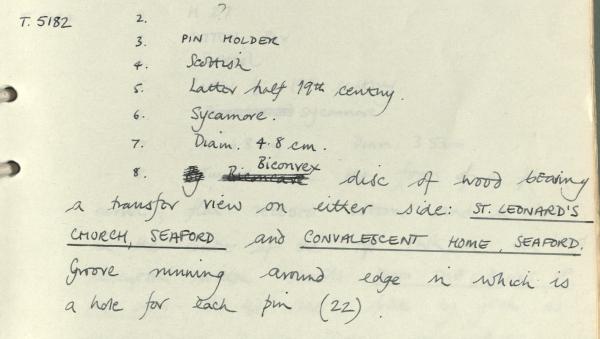 T. 5182
2.
3. PIN HOLDER
4. Scottish
5. Latter half 19th century.
6. Sycamore.
7. Diam. 4.8 cm.
8. Biconvex disc of wood bearing
a transfer view on either side: ST. LEONARD'S
CHURCH, SEAFORD and CONVALESCENT HOME, SEAFORD.
Groove running around edge in which is
a hole for each pin (22).